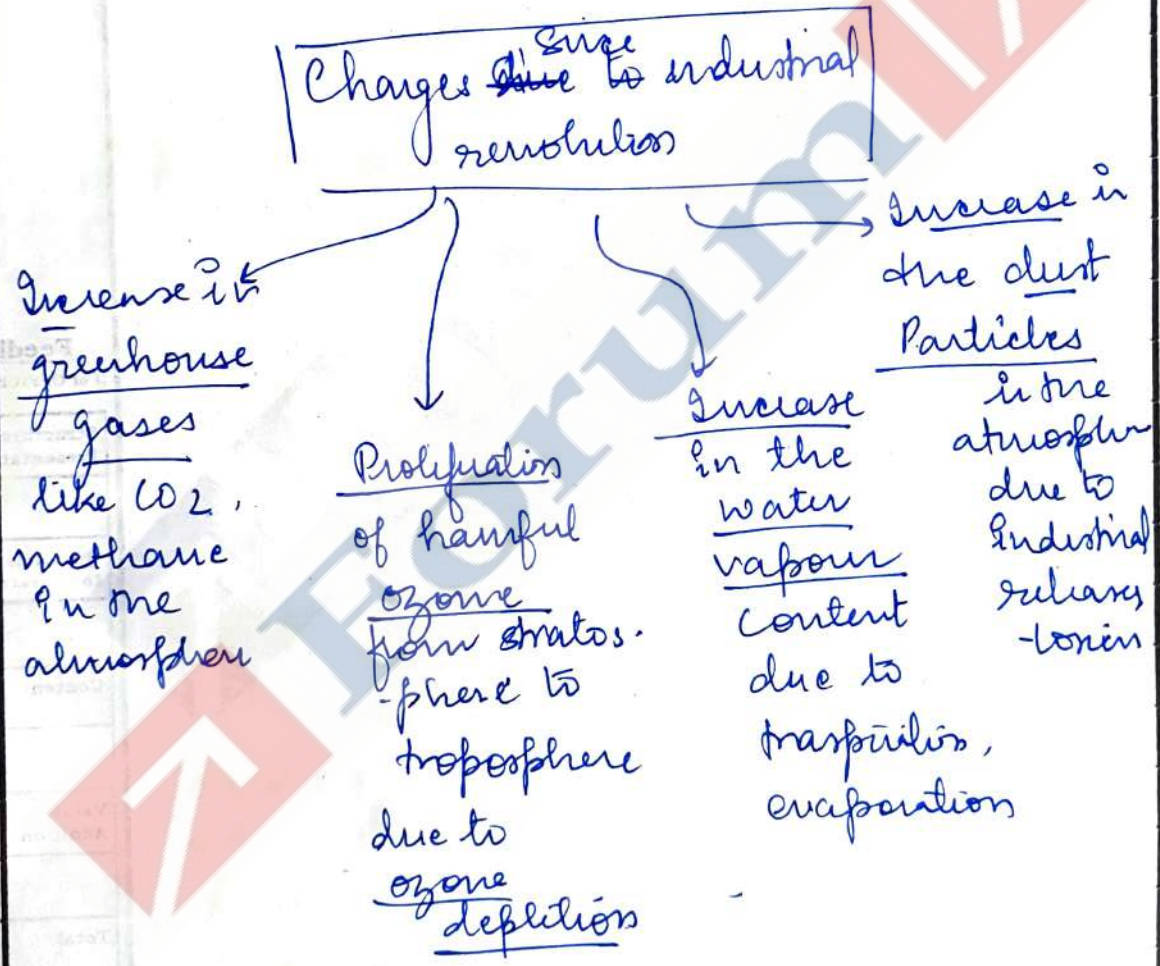 Since
Changes due to industrial
revolution
Increase in
greenhouse
gases
like CO2,
methane
in the
atmosphere
Proliferation
of harmful
ozone
from stratos-
-phere to
troposphere
due to
ozone
depletion
Increase
in the
water
vapour
content
due to
traspiration,
evaporation
Increase in
the dust
Particles
in the
atmosphere
due to
Industrial
releases
-toxin
Forum